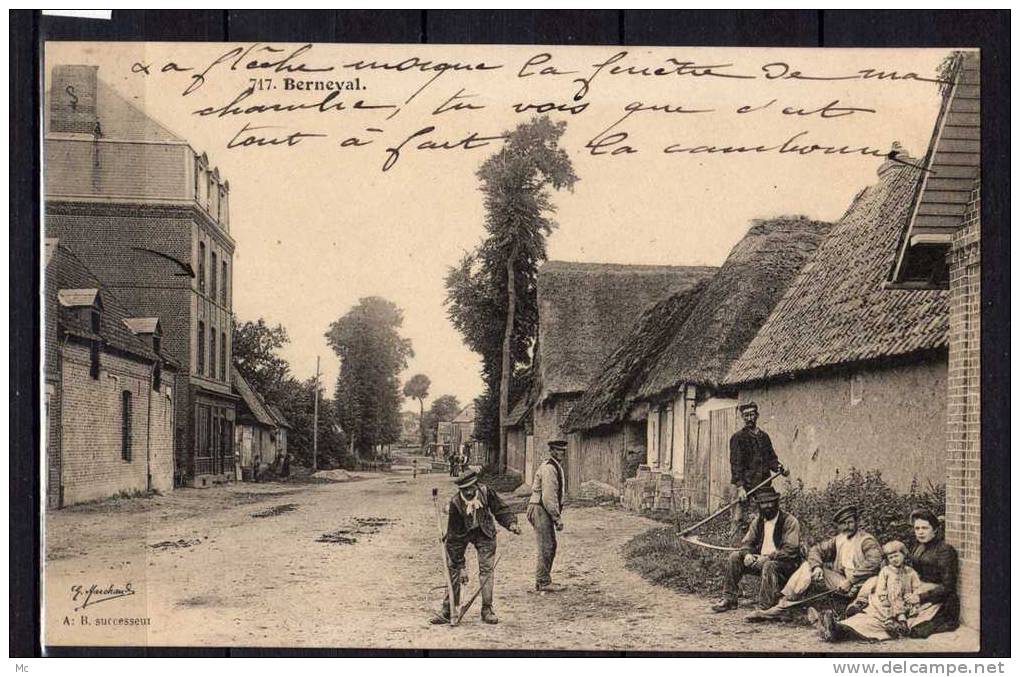 La flêche morque la fenêtre de ma
717. Berneval.
chambre, tu vois que c'est
tout à fait la cambrouse
G. Marchand
A: B. successeur
Mc
www.delcampe.net